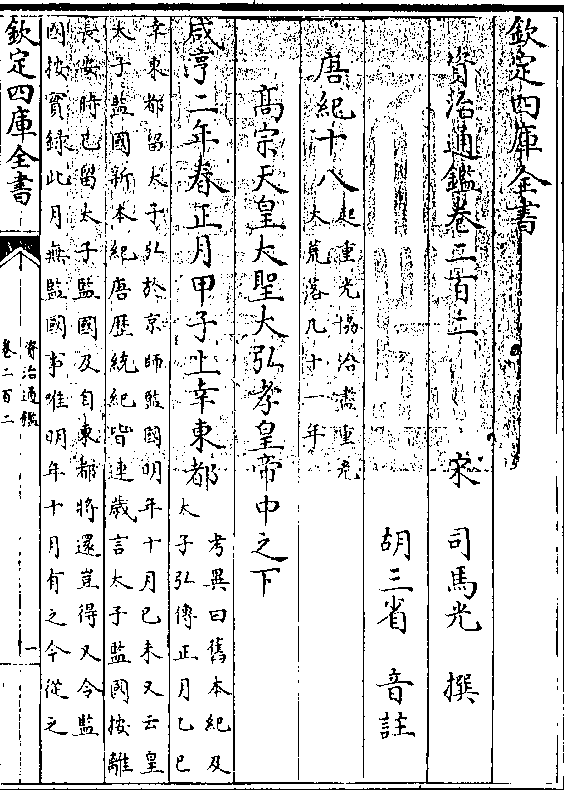 欽定四庫全書
資治通鑑卷二百二
宋 司馬光 撰
胡三省 音註
唐紀十八
起重光協洽盡重光
大荒落凡十一年
高宗天皇大聖大弘孝皇帝中之下
咸亨二年春正月甲子上幸東都
考異曰舊本紀及
太子弘傳正月乙巳
幸東都留太子弘於京師監國明年十月己未又云皇
太子監國新本紀唐歷統紀皆連歲言太子監國按離
長安時已留太子監國及自東都將還豈得又令監
國按實録此月無監國事唯明年十月有之今從之
欽定四庫全書
資治通鑑
卷二百二
一